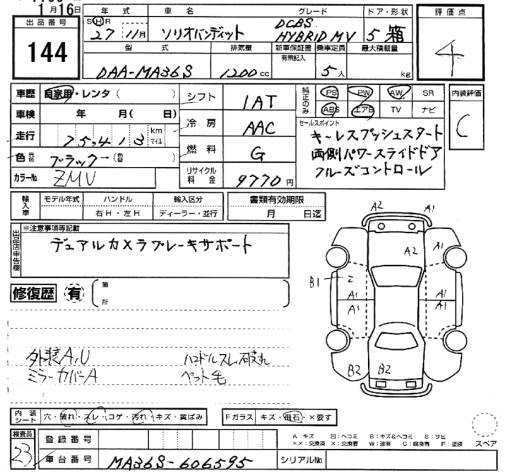 月16日
出品番号
144
年 式 車 名 グレード ドア・形状
27年11月 ソリオバンディット DCBS HYBRID MV 5 箱
型 式 排気量 新車保証書 乗車定員 最大積載量
有無記入
DAA-MA36S 1200cc 5人 kg
評価点
4
車歴 自家用・レンタ( )
車検 年 月( 日)
走行 75,413 km マイル
色 ブラック
カラーNo ZMV
シフト 1AT
冷房 AAC
燃料 G
リサイクル料金 9770円
純正のみ
PS PW AW SR
ABS エアB TV ナビ
セールスポイント
キーレスプッシュスタート
両側パワースライドドア
クルーズコントロール
内装評価
C
輸入車
モデル年式 ハンドル 輸入区分
右H・左H ディーラー・並行
書類有効期限
月 日迄
出品店申告欄
※注意事項等記載
デュアルカメラブレーキサポート
修復歴 有
箇所
外装A,U ハンドルスレ
ミラーカバーA ペット毛
A2 A1
A2 A1
B1 A1 A1
A1 A1
B2 B2 A1
内装シート 穴・破れ・スレ・コゲ・汚れ・キズ・黄ばみ
Fガラス キズ・飛石・×要す
検査員
23
登録番号
車台番号 MA36S-606595
シリアルNo.
A:キズ U:ヘコミ B:キズ&ヘコミ S:サビ
××:交換済 X:交換要 W:波有 C:腐蝕有 P:塗装
スペア